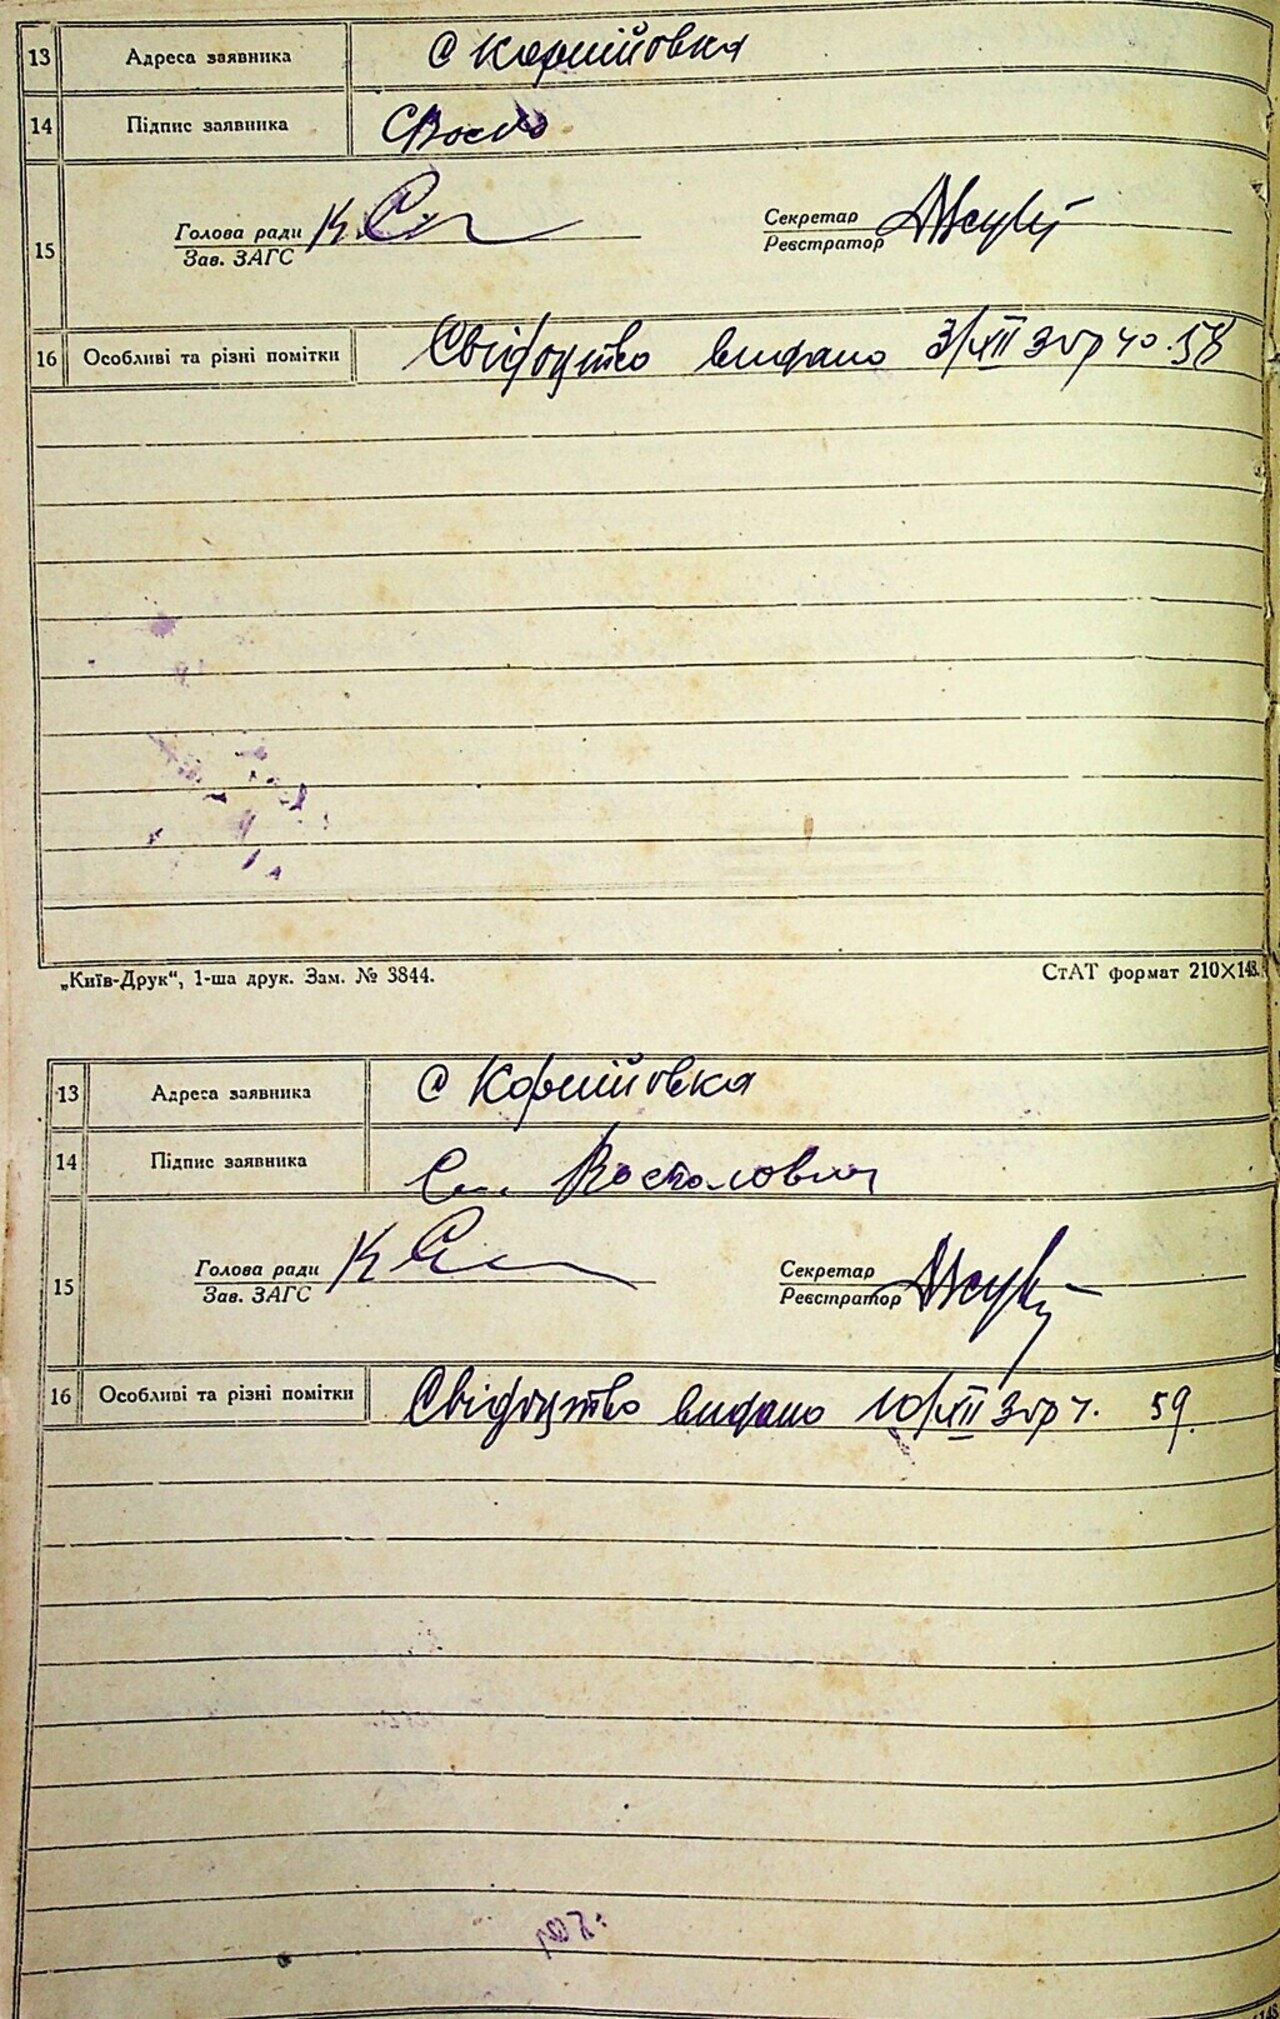 13 Адреса заявника с Корнійовка
14 Підпис заявника
15 Голова ради Секретар
Зав. ЗАГС Реєстратор
16 Особливі та різні помітки Свідоцтво видано 3/XII 30р 58
„Київ-Друк“, 1-ша друк. Зам. № 3844. СтАТ формат 210×148.
13 Адреса заявника с Корнійовка
14 Підпис заявника
15 Голова ради Секретар
Зав. ЗАГС Реєстратор
16 Особливі та різні помітки Свідоцтво видано 10/XII 30р 59